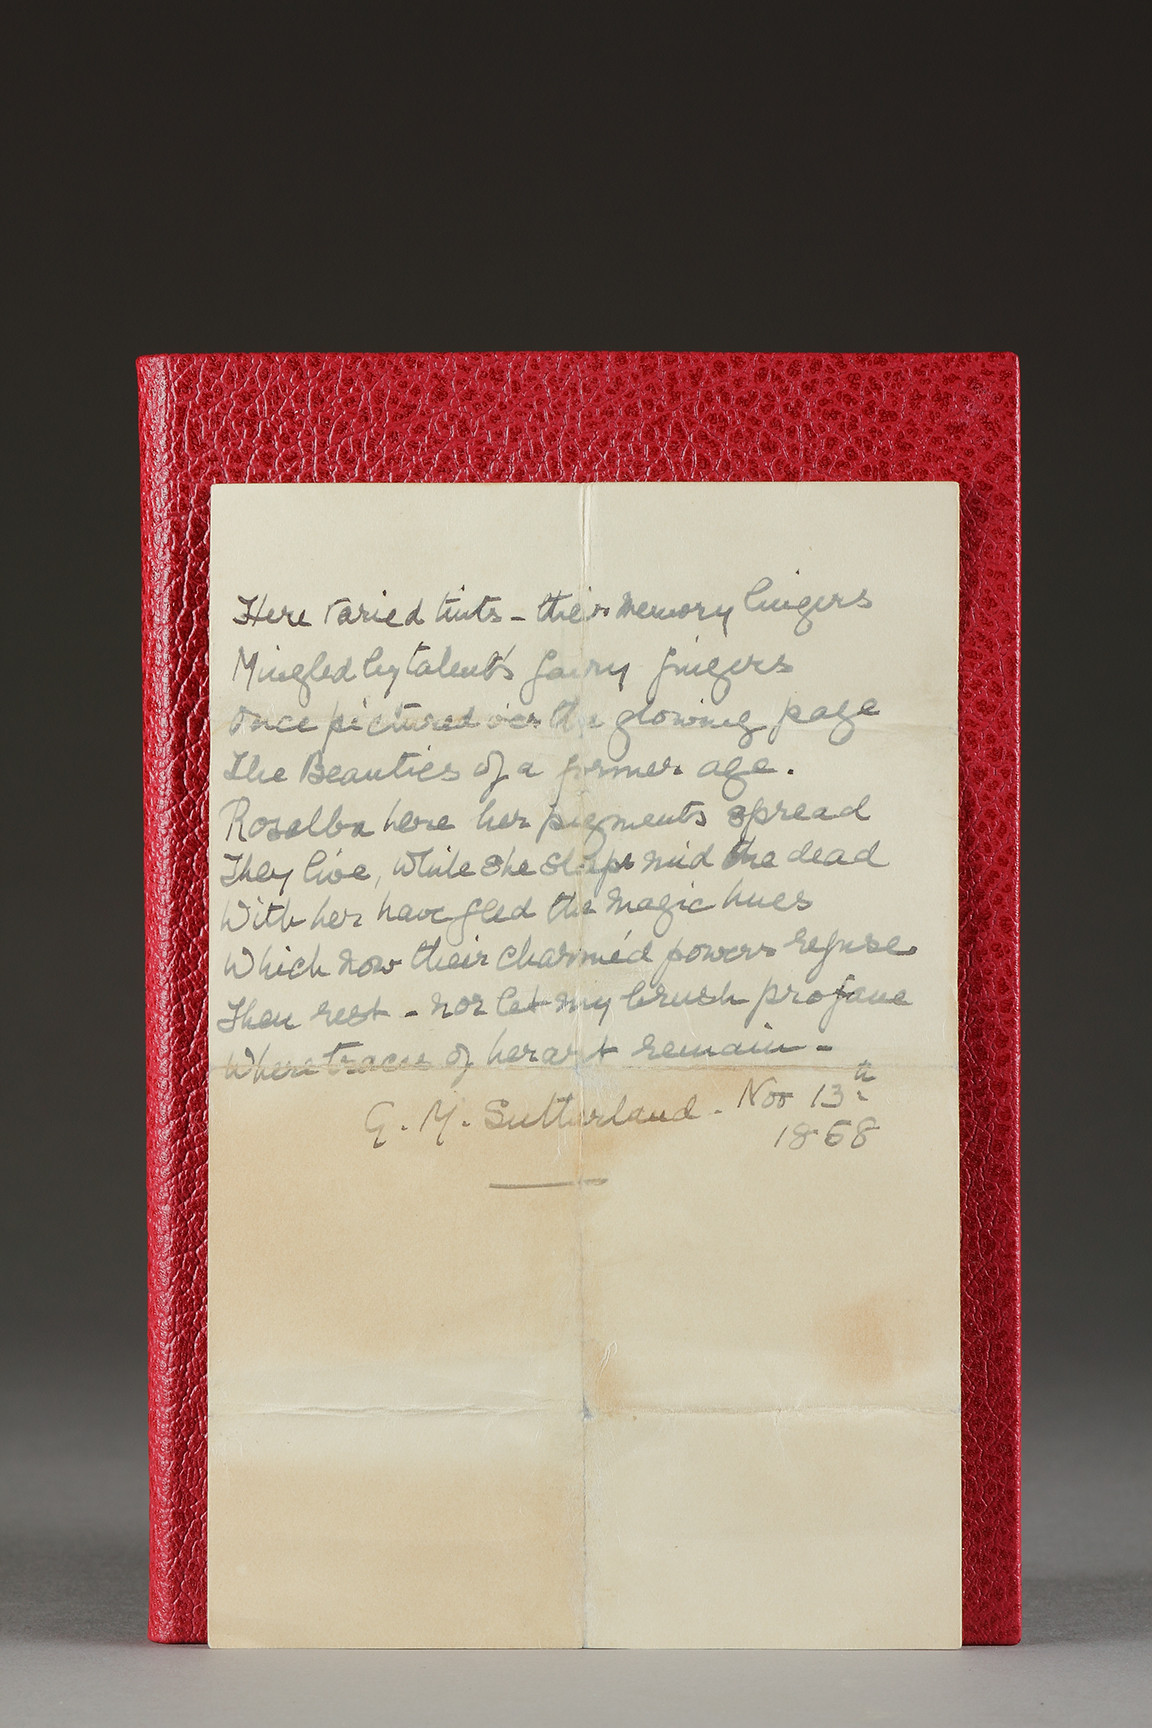 Here varied tints - their memory lingers
Mingled by talent's fairy fingers
Once pictured o'er the glowing page
The Beauties of a former age.
Rosalba here her pigments spread
They live, while she sleeps mid the dead
With her have fled the magic hues
Which now their charmèd powers refuse
Then rest - nor let my brush profane
Where traces of her art remain -
G. M. Sutherland. Nov 13th
1868